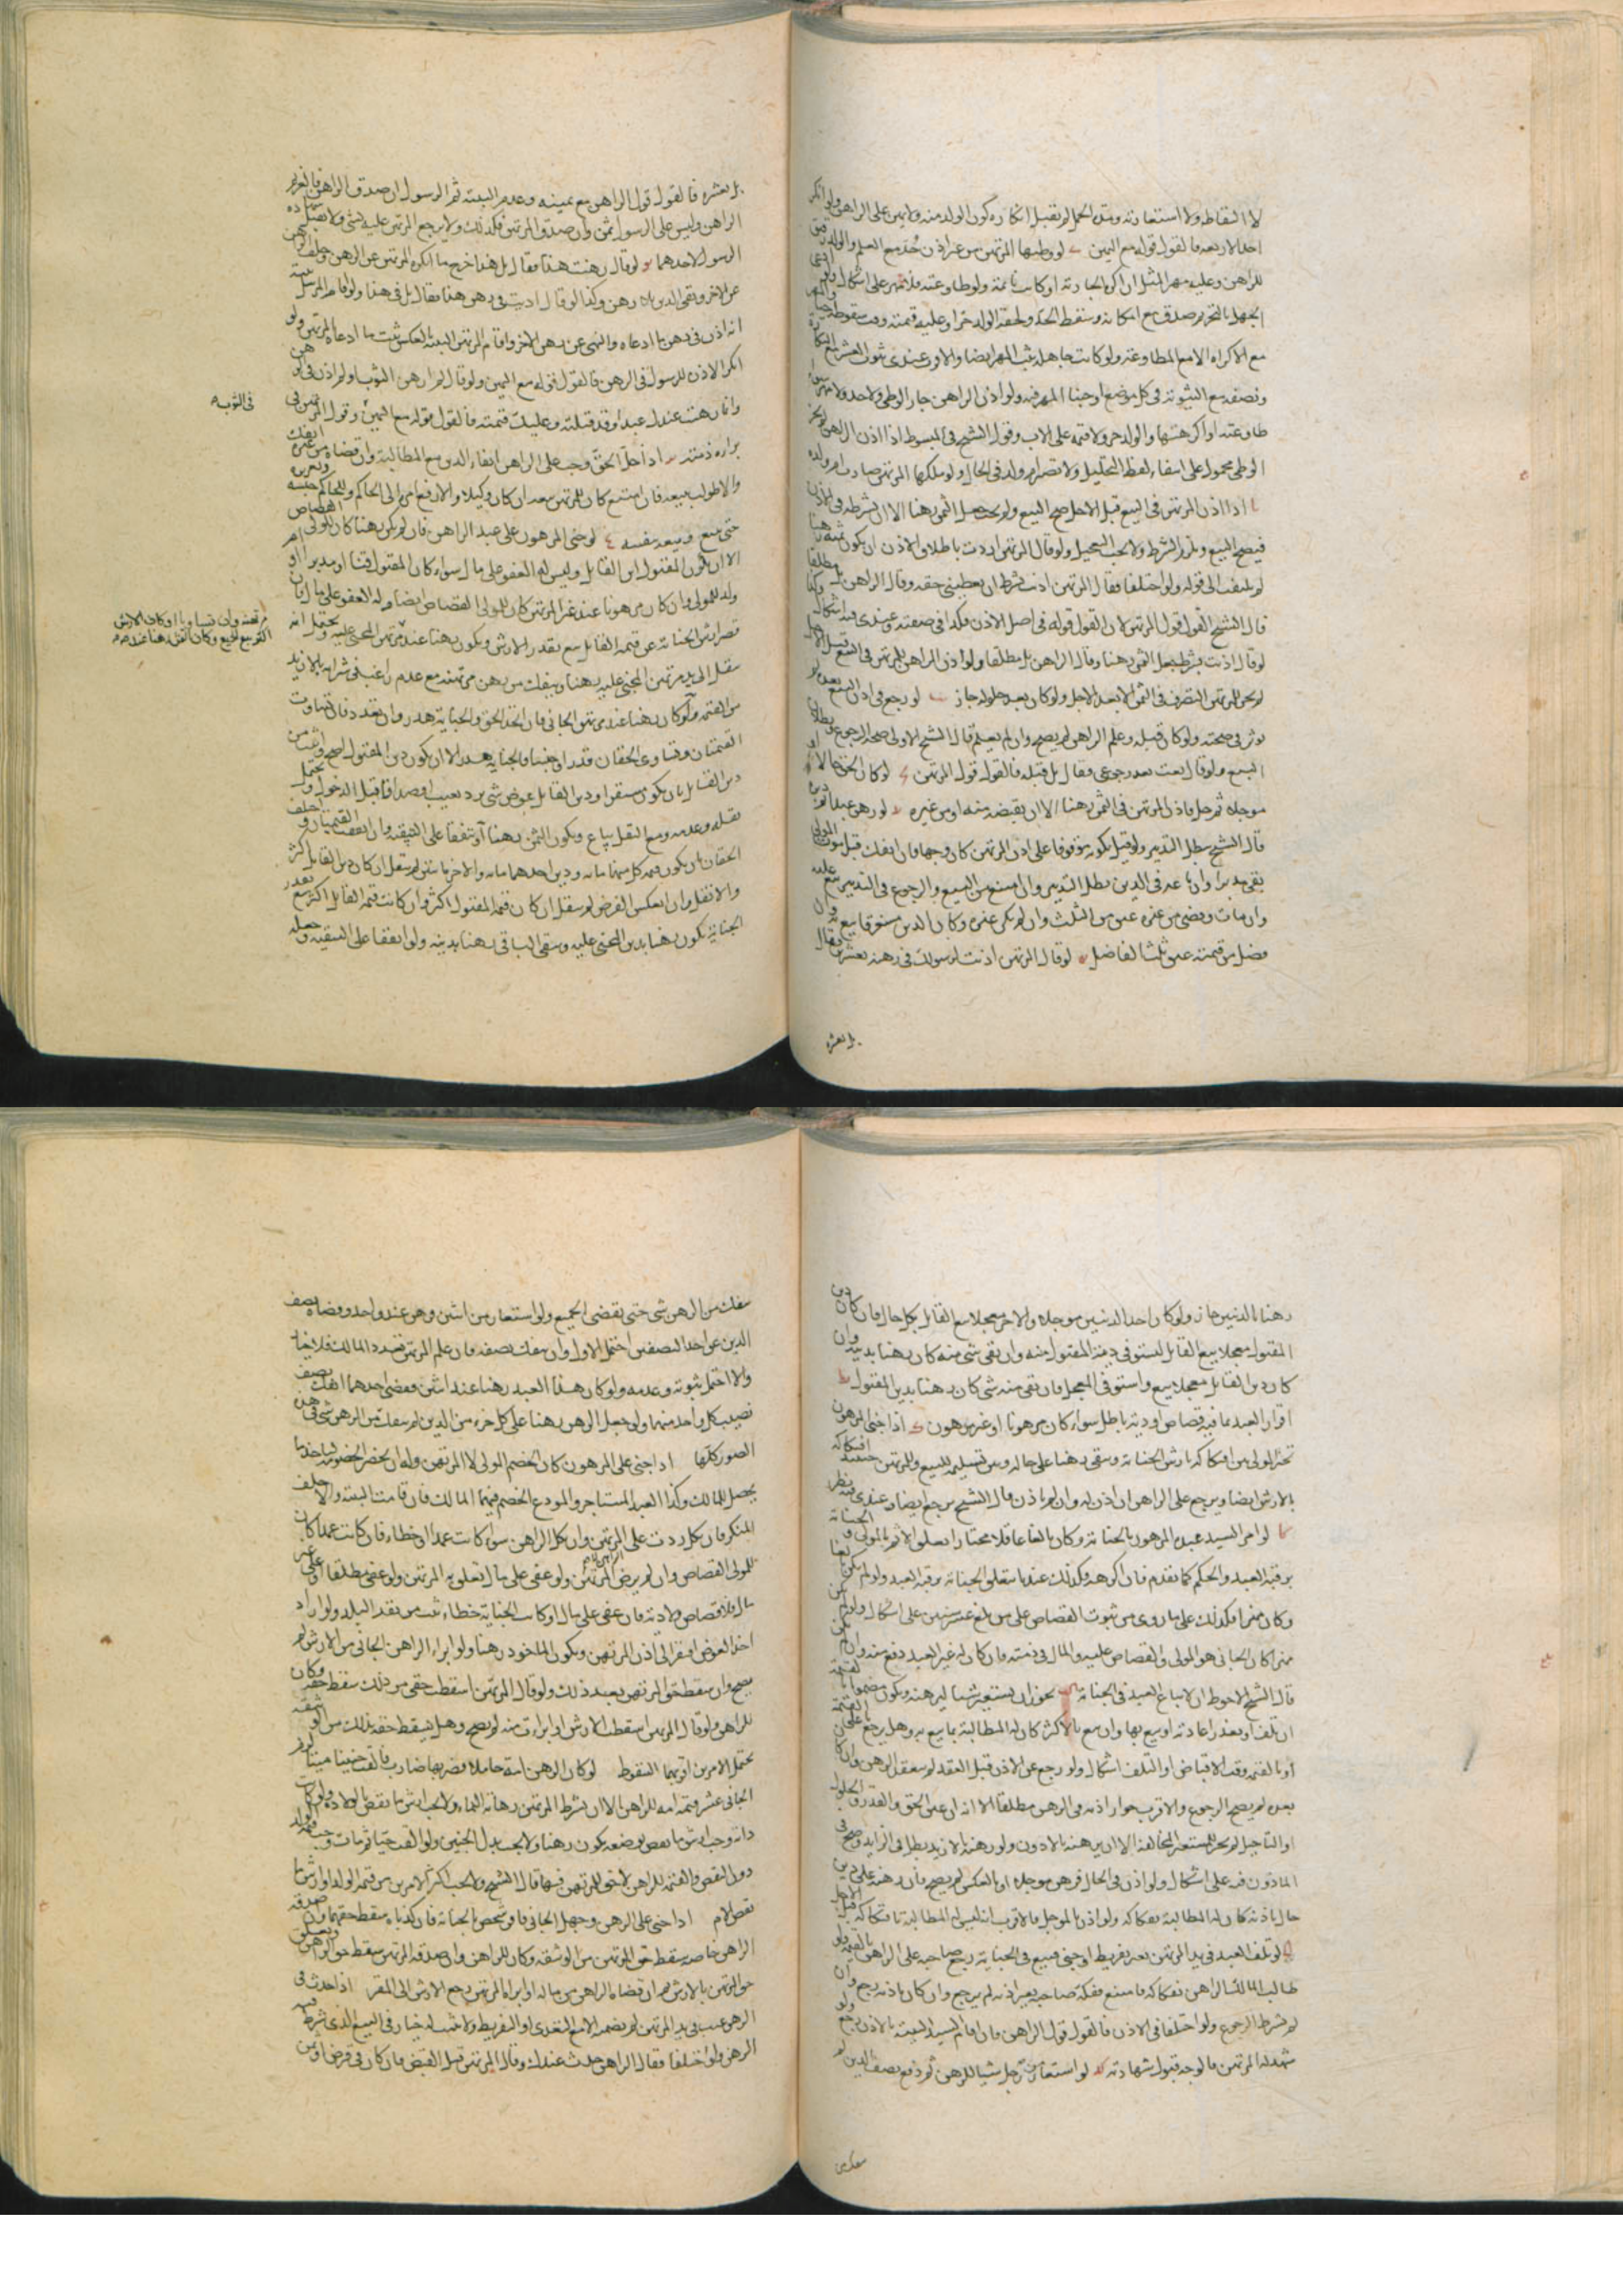 لا التقاطه ولا استعارته وبعد الحمل لم تقبل انكاره كون الولد منه ولا يمين على الراهن ولو انكر
احد الاربعه فالقول قوله مع اليمين لو وطيها المرتهن من غير اذن حد مع العلم والولد رق
للراهن وعليه مهر المثل ان اكره الجارية او كانت نائمة ولو طاوعته فلا مهر على اشكال ولو ادعى
الجهل بالتحريم صدق مع امكانه وسقط الحد ولحقه الولد حرا وعليه قيمته وقت سقوطه حيا والمهر
مع الاكراه لا مع المطاوعة ولو كانت جاهلة ثبت المهر ايضا والاقرب عندي ثبوت العشر مع البكارة
ونصفه مع الثيوبة في كل موضع اوجبنا المهر فيه ولو اذن الراهن جاز الوطي ولا حد ولا مهر سواء
طاوعته او اكرهها والولد حر ولا قيمة على الاب وقول الشيخ في المبسوط اذا اذن الراهن يحرم
الوطي محمول على انتفاء لفظ التحليل ولا تصير ام ولد في الحال ولو ملكها المرتهن صارت ام ولده
اذا اذن المرتهن في البيع قبل الاجل صح البيع ولم يجب جعل الثمن رهنا الا ان يشرطه في الاذن
فيصح البيع ويلزم الشرط ولا يجب التعجيل ولو قال المرتهن اردت باطلاق الاذن ان يكون ثمنه رهنا
لم يلتفت الى قوله ولو اختلفا فقال المرتهن اذنت بشرط ان يعطيني حقه وقال الراهن بل مطلقا
قال الشيخ القول قول المرتهن لان القول قوله في اصل الاذن فكذا في صفته وعندي فيه اشكال وكذا
لو قال اذنت بشرط جعل الثمن رهنا وقال الراهن بل مطلقا ولو اذن الراهن للمرتهن في البيع قبل الاجل
لم يجز للمرتهن التصرف في الثمن الا بعد الاجل ولو كان بعد حلوله جاز لو رجع في اذن البيع بعده لم
يوثر في صحته ولو كان قبله وعلم الراهن لم يصح وان لم يعلم قال الشيخ الاولى صحة الرجوع وبطلان
البيع ولو قال بعت بعد رجوعي وقال بل قبله فالقول قول المرتهن لو كان الحق حالا او
موجلا ثم حل فاذن المرتهن في الثمن رهنا الا ان يقبضه منه او من غيره لو رهن عبدا دبره
قال الشيخ يبطل التدبير ولو قيل بكونه موقوفا على اذن المرتهن كان وجها فان انفك قبل موت المولى
بقي مدبرا وان باعه في الدين بطل التدبير وان امتنع من البيع والرجوع في التدبير بيع عليه
وان مات وقضى من غيره عتق من الثلث وان لم يكن غيره وكان الدين مستغرقا بيع فيه وان
فضل من قيمته عتق ثلث الفاضل لو قال المرتهن اذنت لرسولك في رهنه بعشرين وقال
بل بعشره
بل بعشره فالقول قول الراهن مع يمينه وعدم البينة ثم الرسول ان صدق الراهن
الراهن وليس على الرسول يمين وان صدق المرتهن فكذلك ولا يرجع المرتهن عليه بشي ولا تقبل شهادة
الرسول لاحدهما لو قال رهنت هذا فقال بل هذا خرج ما انكره المرتهن عن الرهن وحلف الراهن
عن الاخر وبقي الدين بلا رهن وكذا لو قال اذنت في رهن هذا فقال بل في هذا ولو اقام المرسل بينة
انه اذن في رهن ما ادعاه والنهي عن رهن الاخر واقام المرتهن البينة بالعكس ثبت ما ادعاه المرتهن ولو
انكر الاذن للرسول في الرهن فالقول قوله مع اليمين ولو قال لم ارهن الثوب او لم اذن في رهن
في الثوب
وانما رهنت عندك عبدا وقد قتلته وعليك قيمته فالقول قوله مع اليمين وقول المرتهن في
براءة ذمته اذا حل الحق وجب على الراهن ايفاء الدين مع المطالبة وان قضاه من غيره انفك
والا طولب ببيعه فان امتنع كان للمرتهن بيعه ان كان وكيلا والا رفع امره الى الحاكم وللحاكم حبسه وتعزيره
حتى يبيع وبيعه بنفسه لو جنى المرهون على عبد الراهن فان لم يكن رهنا كان للمولى القصاص
الا ان يكون المقتول ابن القاتل وليس له العفو على مال سواء كان المقتول قنا او مدبرا او ام
ولد للمولى وان كان مرهونا عند غير المرتهن كان للمولى القصاص ايضا وله العفو على مال فان
قصر ارش الجناية عن قيمة القاتل بيع بقدر الارش ويكون رهنا عند مرتهن المجني عليه ويحتمل انه
ينقل الى يد مرتهن المجني عليه رهنا وينفك من رهن مرتهنه مع عدم راغب في شرائه بالازيد
من القيمة ولو كان رهنا عند مرتهن الجاني فان اتحد الحق والجناية هدر وان تعدد فان تساوت
القيمتان وتساوى الحقان قدرا وجنسا فالجناية هدر الا ان يكون دين المقتول اصح واثبت من
دين القاتل بان يكون مستقرا ودين القاتل عوض شي يرد بعيب او صداقا قبل الدخول ويحتمل
نقله وعدمه ومع النقل يباع ويكون الثمن رهنا او يتفقا على التبقية وان اتفقت القيمتان واختلف
الحقان بان يكون قيمة كل منهما مائة ودين احدهما مائة والاخر مائتين لم ينقل ان كان دين القاتل اكثر
والا نقل وان انعكس الفرض لم ينقل ان كان قيمة المقتول اكثر وان كانت قيمة القاتل اكثر بيع بقدر
الجناية يكون رهنا بدين المجني عليه ويبقى الباقي رهنا بدينه ولو اتفقا على التبقية وجعله
رهنا بالدينين جاز ولو كان احد الدينين موجلا والاخر معجلا بيع القاتل بكل حال فان كان دين
المقتول معجلا بيع القاتل ليستوفي دين المقتول منه وان بقي شي منه كان رهنا بدينه وان
كان دين القاتل معجلا بيع واستوفي المعجل فان بقي منه شي كان رهنا بدين المقتول
اقرار العبد بما فيه قصاص او دية باطل سواء كان مرهونا او غير مرهون اذا جنى المرهون
تخير المولى بين افتكاكه بارش الجناية ويبقى رهنا على حاله وبين تسليمه للبيع وللمرتهن حينئذ افتكاكه
بالارش ايضا ويرجع على الراهن ان اذن له وان لم ياذن قال الشيخ يرجع ايضا وعندي فيه نظر
لو امر السيد عبده المرهون بالجناية وكان بالغا عاقلا مختارا تعلق الاثم بالمولى والجناية
برقبة العبد والحكم كما تقدم فان اكرهه فكذلك عندنا يتعلق الجناية برقبة العبد ولو لم يكن بالغا
وكان مميزا فكذلك على ما روي من ثبوت القصاص على من بلغ عشر سنين على اشكال ولو لم يكن
مميزا كان الجاني هو المولى والقصاص عليه والمال في ذمته فان كان له غير العبد دفع منه وان لم يكن
قال الشيخ الاحوط ان يباع العبد في الجناية يجوز ان يستعير شيا ليرهنه ويكون مضمونا بالقيمة
ان تلف او تعذر اعادته او بيع بها وان بيع بالاكثر كان له المطالبة بما بيع به وهل يرجع باعلى القيم
او بالقيمة وقت الاقباض او التلف اشكال ولو رجع عن الاذن قبل العقد لم ينعقد الرهن وان كان
بعده لم يصح الرجوع والاقرب جواز اذنه في الرهن مطلقا الا انه ان عين الحق والقدر والحلول
او التاجيل لم يجز للمستعير المخالفة الا ان يرهنه بالادون ولو رهنه بالازيد بطل في الزايد وصح في
الماذون فيه على اشكال ولو اذن في الحال فرهن موجلا او بالعكس لم يصح فان رهنه على دين
حال باذنه كان له المطالبة بفكاكه ولو اذن بالموجل فالاقرب انه ليس له المطالبة بافتكاكه قبل الاجل
لو تلف العبد في يد المرتهن بغير تفريط او جنى فبيع في الجناية رجع صاحبه على الراهن بالقيمة ولو
طالب المالك الراهن بفكاكه فامتنع ففكه صاحبه بغير اذنه لم يرجع وان كان باذنه رجع وان
لم يشرط الرجوع ولو اختلفا في الاذن فالقول قول الراهن فان اقام السيد البينة بالاذن رجع ولو
شهد له المرتهن فالوجه قبول شهادته لو استعار من رجل شيا للرهن ثم دفع نصف الدين لم
ينفك من
ينفك من الرهن شي حتى يقضي الجميع ولو استعار من اثنين وهن عند واحد وقضاه نصف
الدين عن احد النصفين احتمل الاول وان ينفك نصفه فان علم المرتهن تعدد المالك فلا خيار
والا احتمل ثبوته وعدمه ولو كان هذا العبد رهنا عند اثنين فقضى احدهما انفك نصف
نصيب كل واحد منهما ولو جعل الرهن رهنا على كل جزء من الدين لم ينفك من الرهن شي في هذه
الصور كلها اذا جنى على المرهون كان الخصم المولى لا المرتهن وله ان يحضر الخصومة لياخذ ما
يحصل للمالك وكذا العبد المستاجر والمودع الخصم فيهما المالك فان قامت البينة والا حلف
المنكر فان نكل ردت على المرتهن وان نكل الراهن سواء كانت عمدا او خطاء فان كانت عمدا كان
للمولى القصاص وان لم يرض المرتهن ولو عفى على مال تعلق به المرتهن ولو عفى مطلقا او على غير
مال فلا قصاص ولا دية فان عفى على مال او كانت الجناية خطاء ثبت من نقد البلد ولو اراد
اخذ العوض افتقر الى اذن المرتهن ويكون الماخوذ رهنا ولو ابراء الراهن الجاني من الارش لم
يصح وان سقط حق المرتهن بعد ذلك ولو قال المرتهن اسقطت حقي من ذلك سقط حقه وكان
للراهن ولو قال المرتهن اسقطت الارش او ابرات منه لم يصح وهل يسقط حقه بذلك من الوثيقة
يحتمل الامرين اقربهما السقوط لو كان الرهن امة حاملا فضربها ضارب فالقت جنينا ميتا لزم
الجاني عشر قيمة امه للراهن الا ان يشرط المرتهن رهانة النماء ولا يجب ارش ما نقص بالولادة ولو كانت
دابة وجب ارش ما نقص بوضعه يكون رهنا ولا يجب بدل الجنين ولو القته حيا ثم مات وجب قيمة الولد
دون النقص والقيمة للراهن لا حق للمرتهن فيها قال الشيخ ولا يجب اكثر الامرين من قيمة الولد او ارش ما
نقص الام اذا جنى على الرهن وجهل الجاني فاقر شخص بالجناية فان كذباه سقط حقهما وان صدقه
الراهن خاصة سقط حق المرتهن من الوثيقة وكان للراهن وان صدقه المرتهن سقط حق الراهن ويتعلق
حق المرتهن بالارش ثم ان قضاه الراهن من ماله او ابراه المرتهن رجع الارش الى المقر اذا حدث في
الرهن عيب في يد المرتهن لم يضمنه الا مع التعدي او التفريط ولا يثبت له خيار في البيع الذي شرط فيه
الرهن ولو اختلفا فقال الراهن حدث عندك وقال المرتهن قبل القبض فان كان في قرض او من